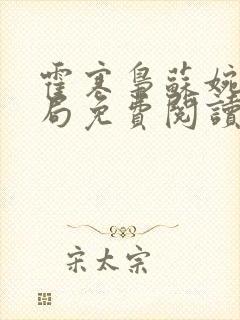 霍寒梟蘇婉
局免費閱讀
宋太宗